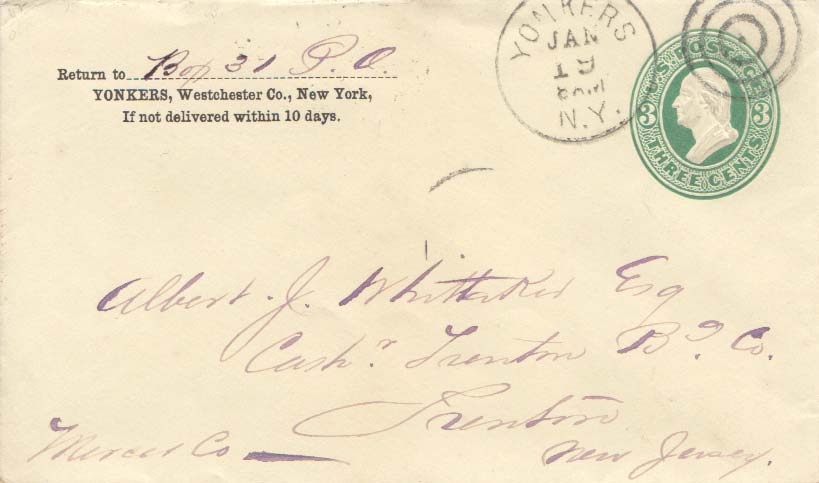 Return to Box 31 P.O.
YONKERS, Westchester Co., New York,
If not delivered within 10 days.
YONKERS
JAN
19
N.Y.
U.S. POSTAGE
3 3
THREE CENTS
Albert. J. Whittaker Esq
Cashr. Trenton Bg. Co.
Trenton
Mercer Co
New Jersey.